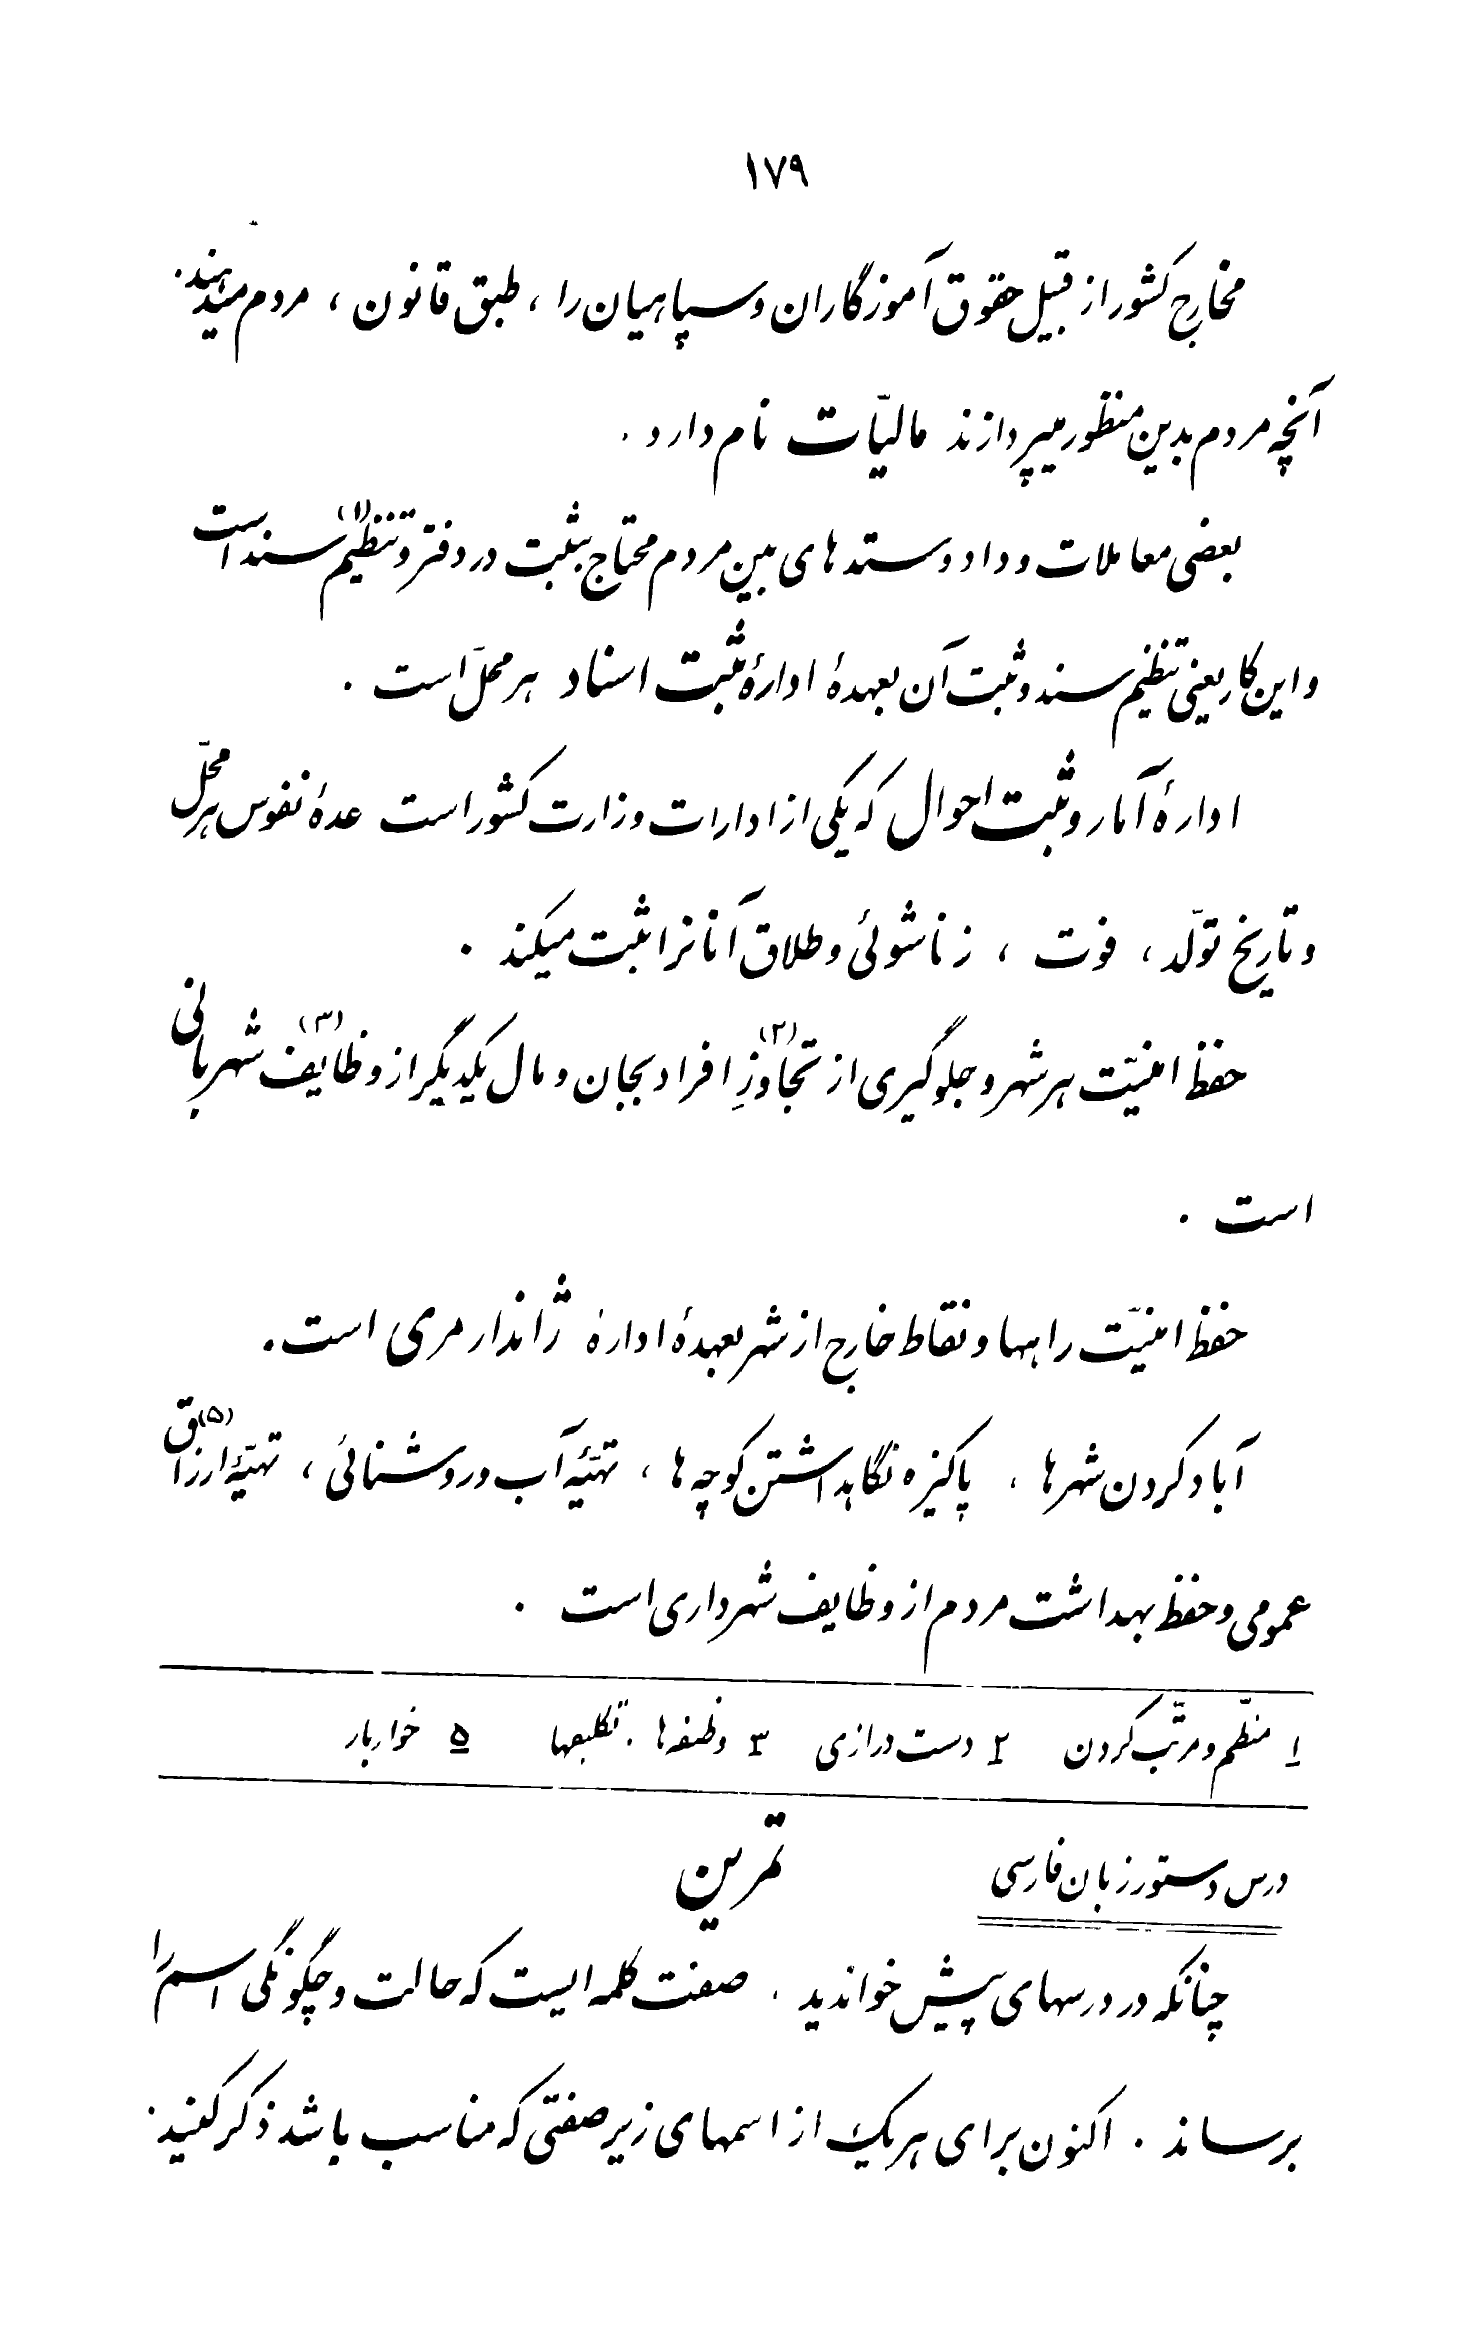 ۱۷۹
مخارج کشور از قبیل حقوق آموزگاران و سپاهیان را ، طبق قانون ، مردم میدهند .
آنچه مردم بدین منظور میپردازند مالیّات نام دارد .
بعضی معاملات و داد و ستدهای بین مردم محتاج بثبت در دفتر و تنظیم (۱) سند است
و این کار یعنی تنظیم سند و ثبت آن بعهدهٔ ادارهٔ ثبت اسناد هر محلّ است .
ادارهٔ آمار و ثبت احوال که یکی از ادارات وزارت کشور است عدهٔ نفوس هر محلّ
و تاریخ تولّد ، فوت ، زناشوئی و طلاق آنانرا ثبت میکند .
حفظ امنیّت هر شهر و جلوگیری از تجاوزِ (۲) افراد بجان و مال یکدیگر از وظایف (۳) شهربانی
است .
حفظ امنیّت راهها و نقاط خارج از شهر بعهدهٔ ادارهٔ ژاندارمری است .
آباد کردن شهرها ، پاکیزه نگاهداشتن کوچه ها ، تهیّهٔ آب و روشنائی ، تهیّهٔ ارزاق (۵)
عمومی و حفظ بهداشت مردم از وظایف شهرداری است .
۱ منظّم و مرتّب کردن ۲ دست درازی ۳ وظیفه ها . تکلیفها ۵ خواربار
درس دستور زبان فارسی
تمرین
چنانکه در درسهای پیش خواندید . صفت کلمه ایست که حالت و چگونگی اسم را
برساند . اکنون برای هر یک از اسمهای زیر صفتی که مناسب باشد ذکر کنید .